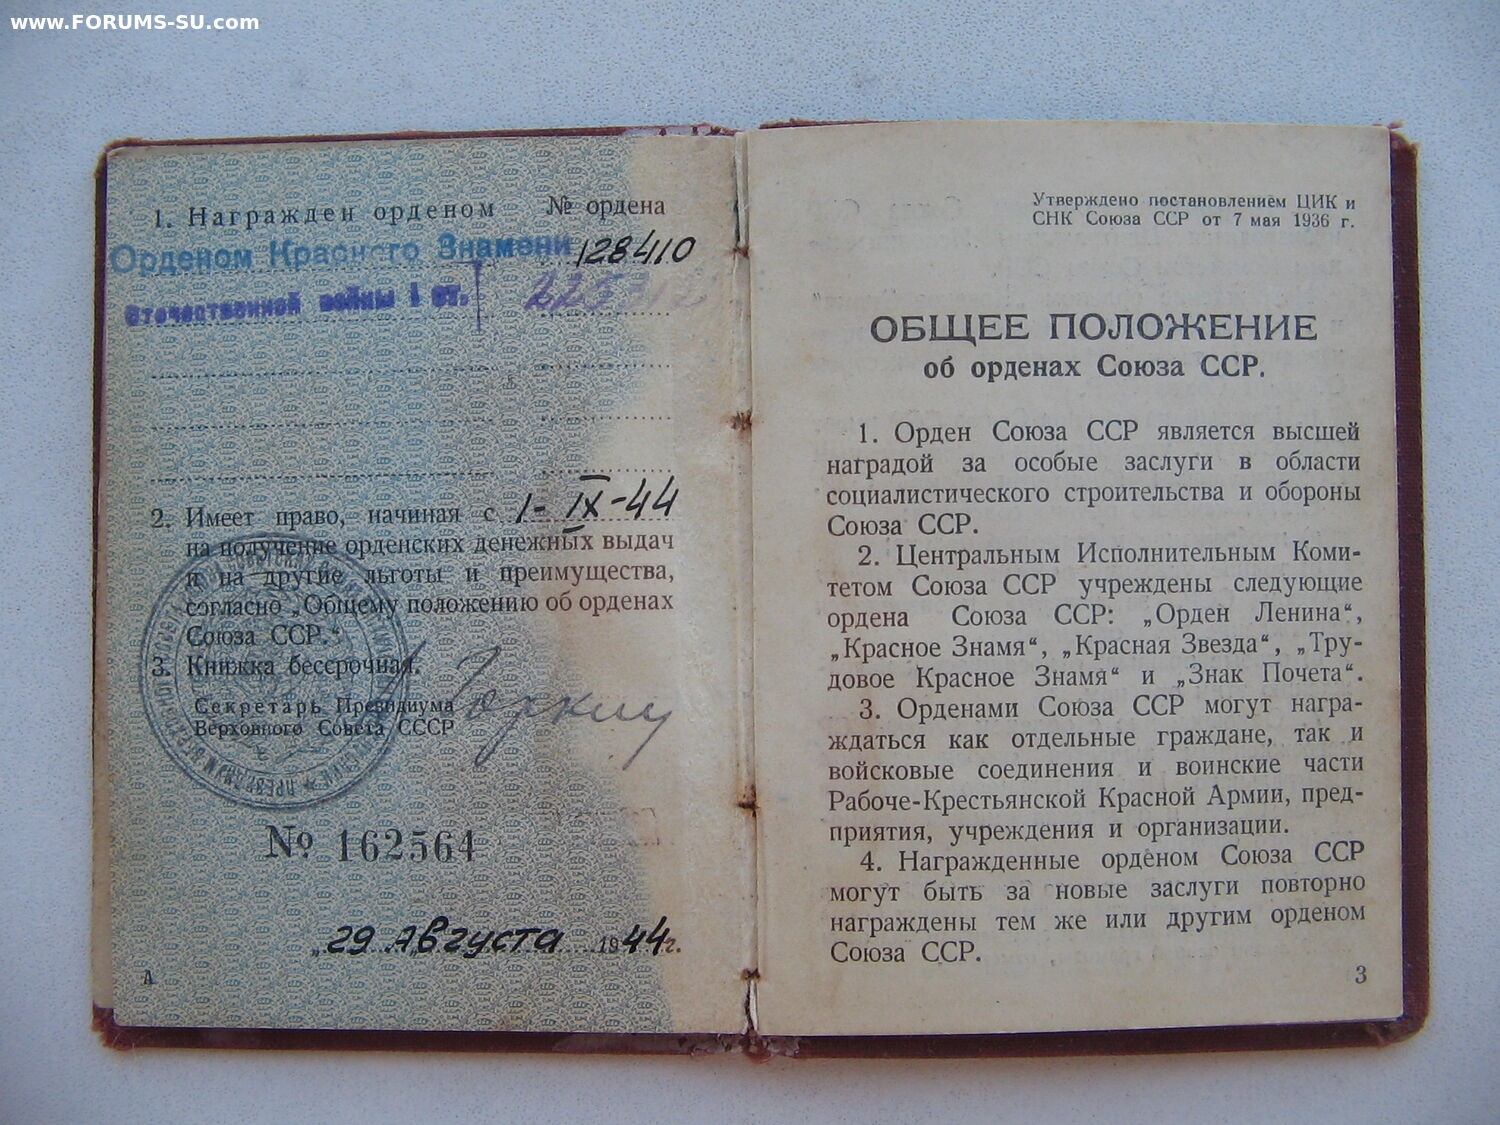 www.FORUMS-SU.com
1. Награжден орденом № ордена
Орденом Красного Знамени 128410
Отечественной войны I ст.
2. Имеет право, начиная с 1-IX-44
на получение орденских денежных выдач
и на другие льготы и преимущества,
согласно „Общему положению об орденах
Союза ССР.“
3. Книжка бессрочная.
Секретарь Президиума
Верховного Совета СССР
№ 162564
„29 Августа 1944г.
А
Утверждено постановлением ЦИК и
СНК Союза ССР от 7 мая 1936 г.
ОБЩЕЕ ПОЛОЖЕНИЕ
об орденах Союза ССР.
1. Орден Союза ССР является высшей
наградой за особые заслуги в области
социалистического строительства и обороны
Союза ССР.
2. Центральным Исполнительным Коми-
тетом Союза ССР учреждены следующие
ордена Союза ССР: „Орден Ленина“,
„Красное Знамя“, „Красная Звезда“, „Тру-
довое Красное Знамя“ и „Знак Почета“.
3. Орденами Союза ССР могут награ-
ждаться как отдельные граждане, так и
войсковые соединения и воинские части
Рабоче-Крестьянской Красной Армии, пред-
приятия, учреждения и организации.
4. Награжденные орденом Союза ССР
могут быть за новые заслуги повторно
награждены тем же или другим орденом
Союза ССР.
3